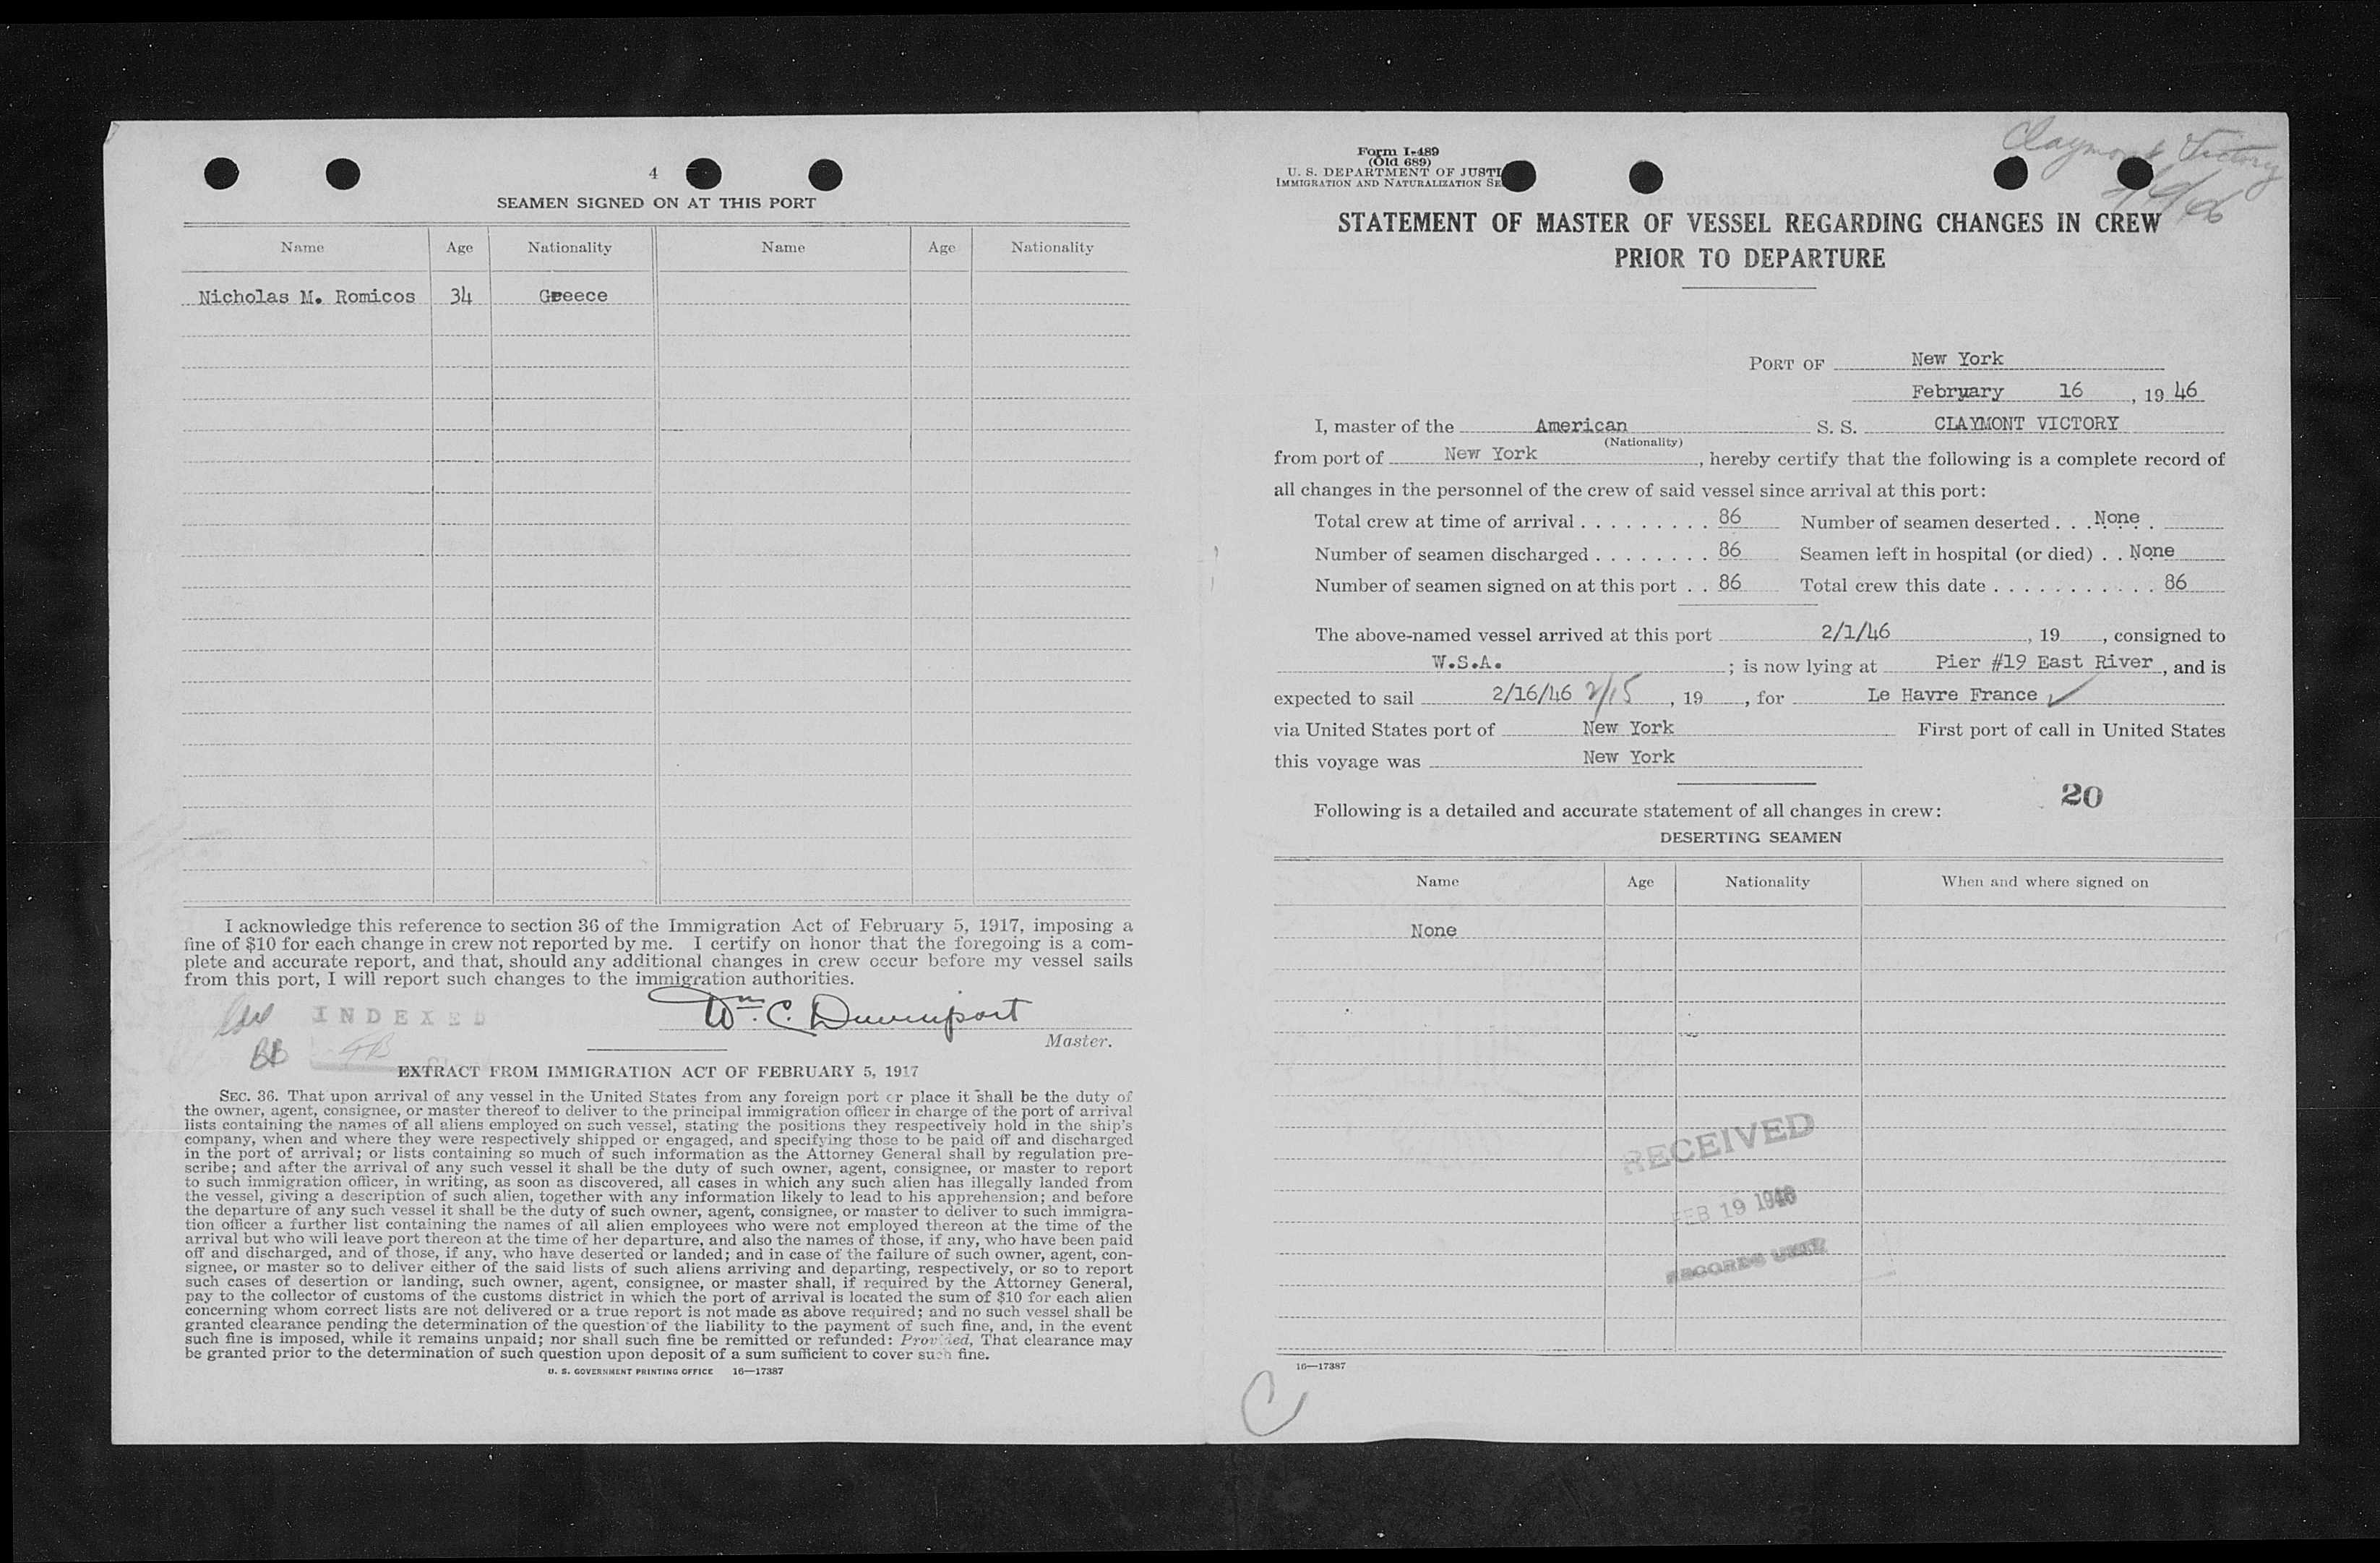 4
SEAMEN SIGNED ON AT THIS PORT
Name Age Nationality Name Age Nationality
Nicholas M. Romicos 34 Greece
I acknowledge this reference to section 36 of the Immigration Act of February 5, 1917, imposing a
fine of $10 for each change in crew not reported by me. I certify on honor that the foregoing is a com-
plete and accurate report, and that, should any additional changes in crew occur before my vessel sails
from this port, I will report such changes to the immigration authorities.
INDEXED
Wm. C. Davenport
BB
Master.
EXTRACT FROM IMMIGRATION ACT OF FEBRUARY 5, 1917
SEC. 36. That upon arrival of any vessel in the United States from any foreign port or place it shall be the duty of
the owner, agent, consignee, or master thereof to deliver to the principal immigration officer in charge of the port of arrival
lists containing the names of all aliens employed on such vessel, stating the positions they respectively hold in the ship's
company, when and where they were respectively shipped or engaged, and specifying those to be paid off and discharged
in the port of arrival; or lists containing so much of such information as the Attorney General shall by regulation pre-
scribe; and after the arrival of any such vessel it shall be the duty of such owner, agent, consignee, or master to report
to such immigration officer, in writing, as soon as discovered, all cases in which any such alien has illegally landed from
the vessel, giving a description of such alien, together with any information likely to lead to his apprehension; and before
the departure of any such vessel it shall be the duty of such owner, agent, consignee, or master to deliver to such immigra-
tion officer a further list containing the names of all alien employees who were not employed thereon at the time of the
arrival but who will leave port thereon at the time of her departure, and also the names of those, if any, who have been paid
off and discharged, and of those, if any, who have deserted or landed; and in case of the failure of such owner, agent, con-
signee, or master so to deliver either of the said lists of such aliens arriving and departing, respectively, or so to report
such cases of desertion or landing, such owner, agent, consignee, or master shall, if required by the Attorney General,
pay to the collector of customs of the customs district in which the port of arrival is located the sum of $10 for each alien
concerning whom correct lists are not delivered or a true report is not made as above required; and no such vessel shall be
granted clearance pending the determination of the question of the liability to the payment of such fine, and, in the event
such fine is imposed, while it remains unpaid; nor shall such fine be remitted or refunded: Provided, That clearance may
be granted prior to the determination of such question upon deposit of a sum sufficient to cover such fine.
U. S. GOVERNMENT PRINTING OFFICE 16—17387
Form I-489
(Old 689)
U. S. DEPARTMENT OF JUSTI
IMMIGRATION AND NATURALIZATION SE
Claymont Victory
STATEMENT OF MASTER OF VESSEL REGARDING CHANGES IN CREW
PRIOR TO DEPARTURE
PORT OF New York
February 16, 19 46
I, master of the American S. S. CLAYMONT VICTORY
(Nationality)
from port of New York, hereby certify that the following is a complete record of
all changes in the personnel of the crew of said vessel since arrival at this port:
Total crew at time of arrival . . . . . . . . . 86 Number of seamen deserted . . . None
Number of seamen discharged . . . . . . . . 86 Seamen left in hospital (or died) . . None
Number of seamen signed on at this port . . 86 Total crew this date . . . . . . . . . . . 86
The above-named vessel arrived at this port 2/1/46, 19 , consigned to
W.S.A. ; is now lying at Pier #19 East River, and is
expected to sail 2/16/46 2/15, 19 , for Le Havre France ✓
via United States port of New York First port of call in United States
this voyage was New York
20
Following is a detailed and accurate statement of all changes in crew:
DESERTING SEAMEN
Name Age Nationality When and where signed on
None
RECEIVED
FEB 19 1946
RECORDS UNIT
16—17387
C